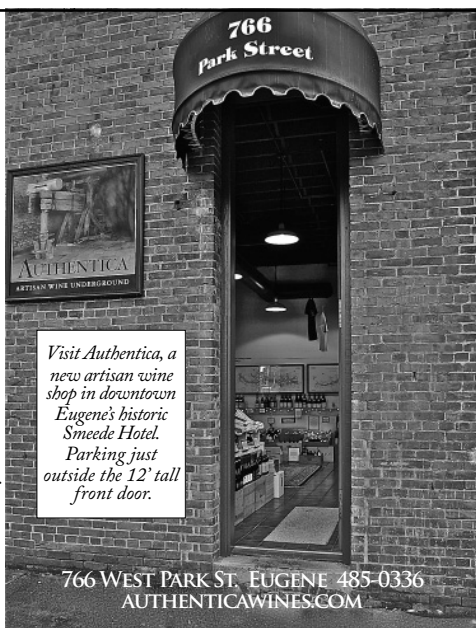 766
Park Street
AUTHENTICA
ARTISAN WINE UNDERGROUND
Visit Authentica, a
new artisan wine
shop in downtown
Eugene's historic
Smeede Hotel.
Parking just
outside the 12' tall
front door.
766 WEST PARK ST. EUGENE 485-0336
AUTHENTICAWINES.COM